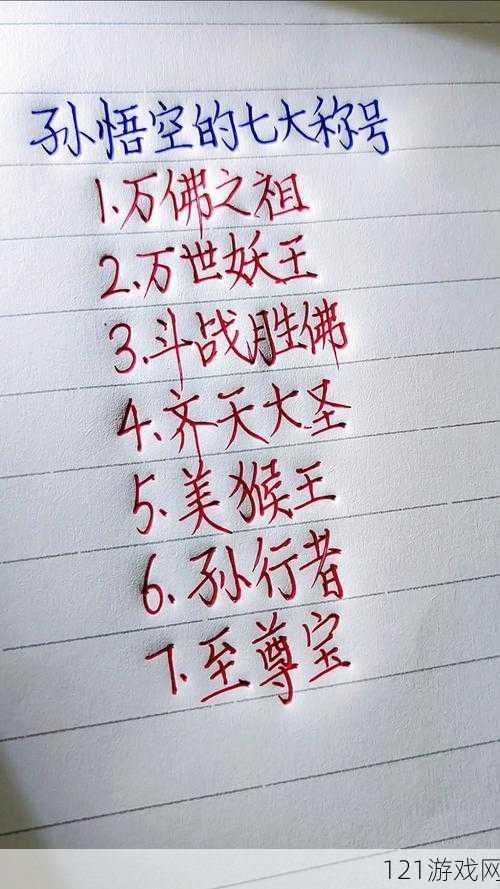 孙悟空的七大称号
1.万佛之祖
2.万世妖王
3.斗战胜佛
4.齐天大圣
5.美猴王
6.孙行者
7.至尊宝
121游戏网